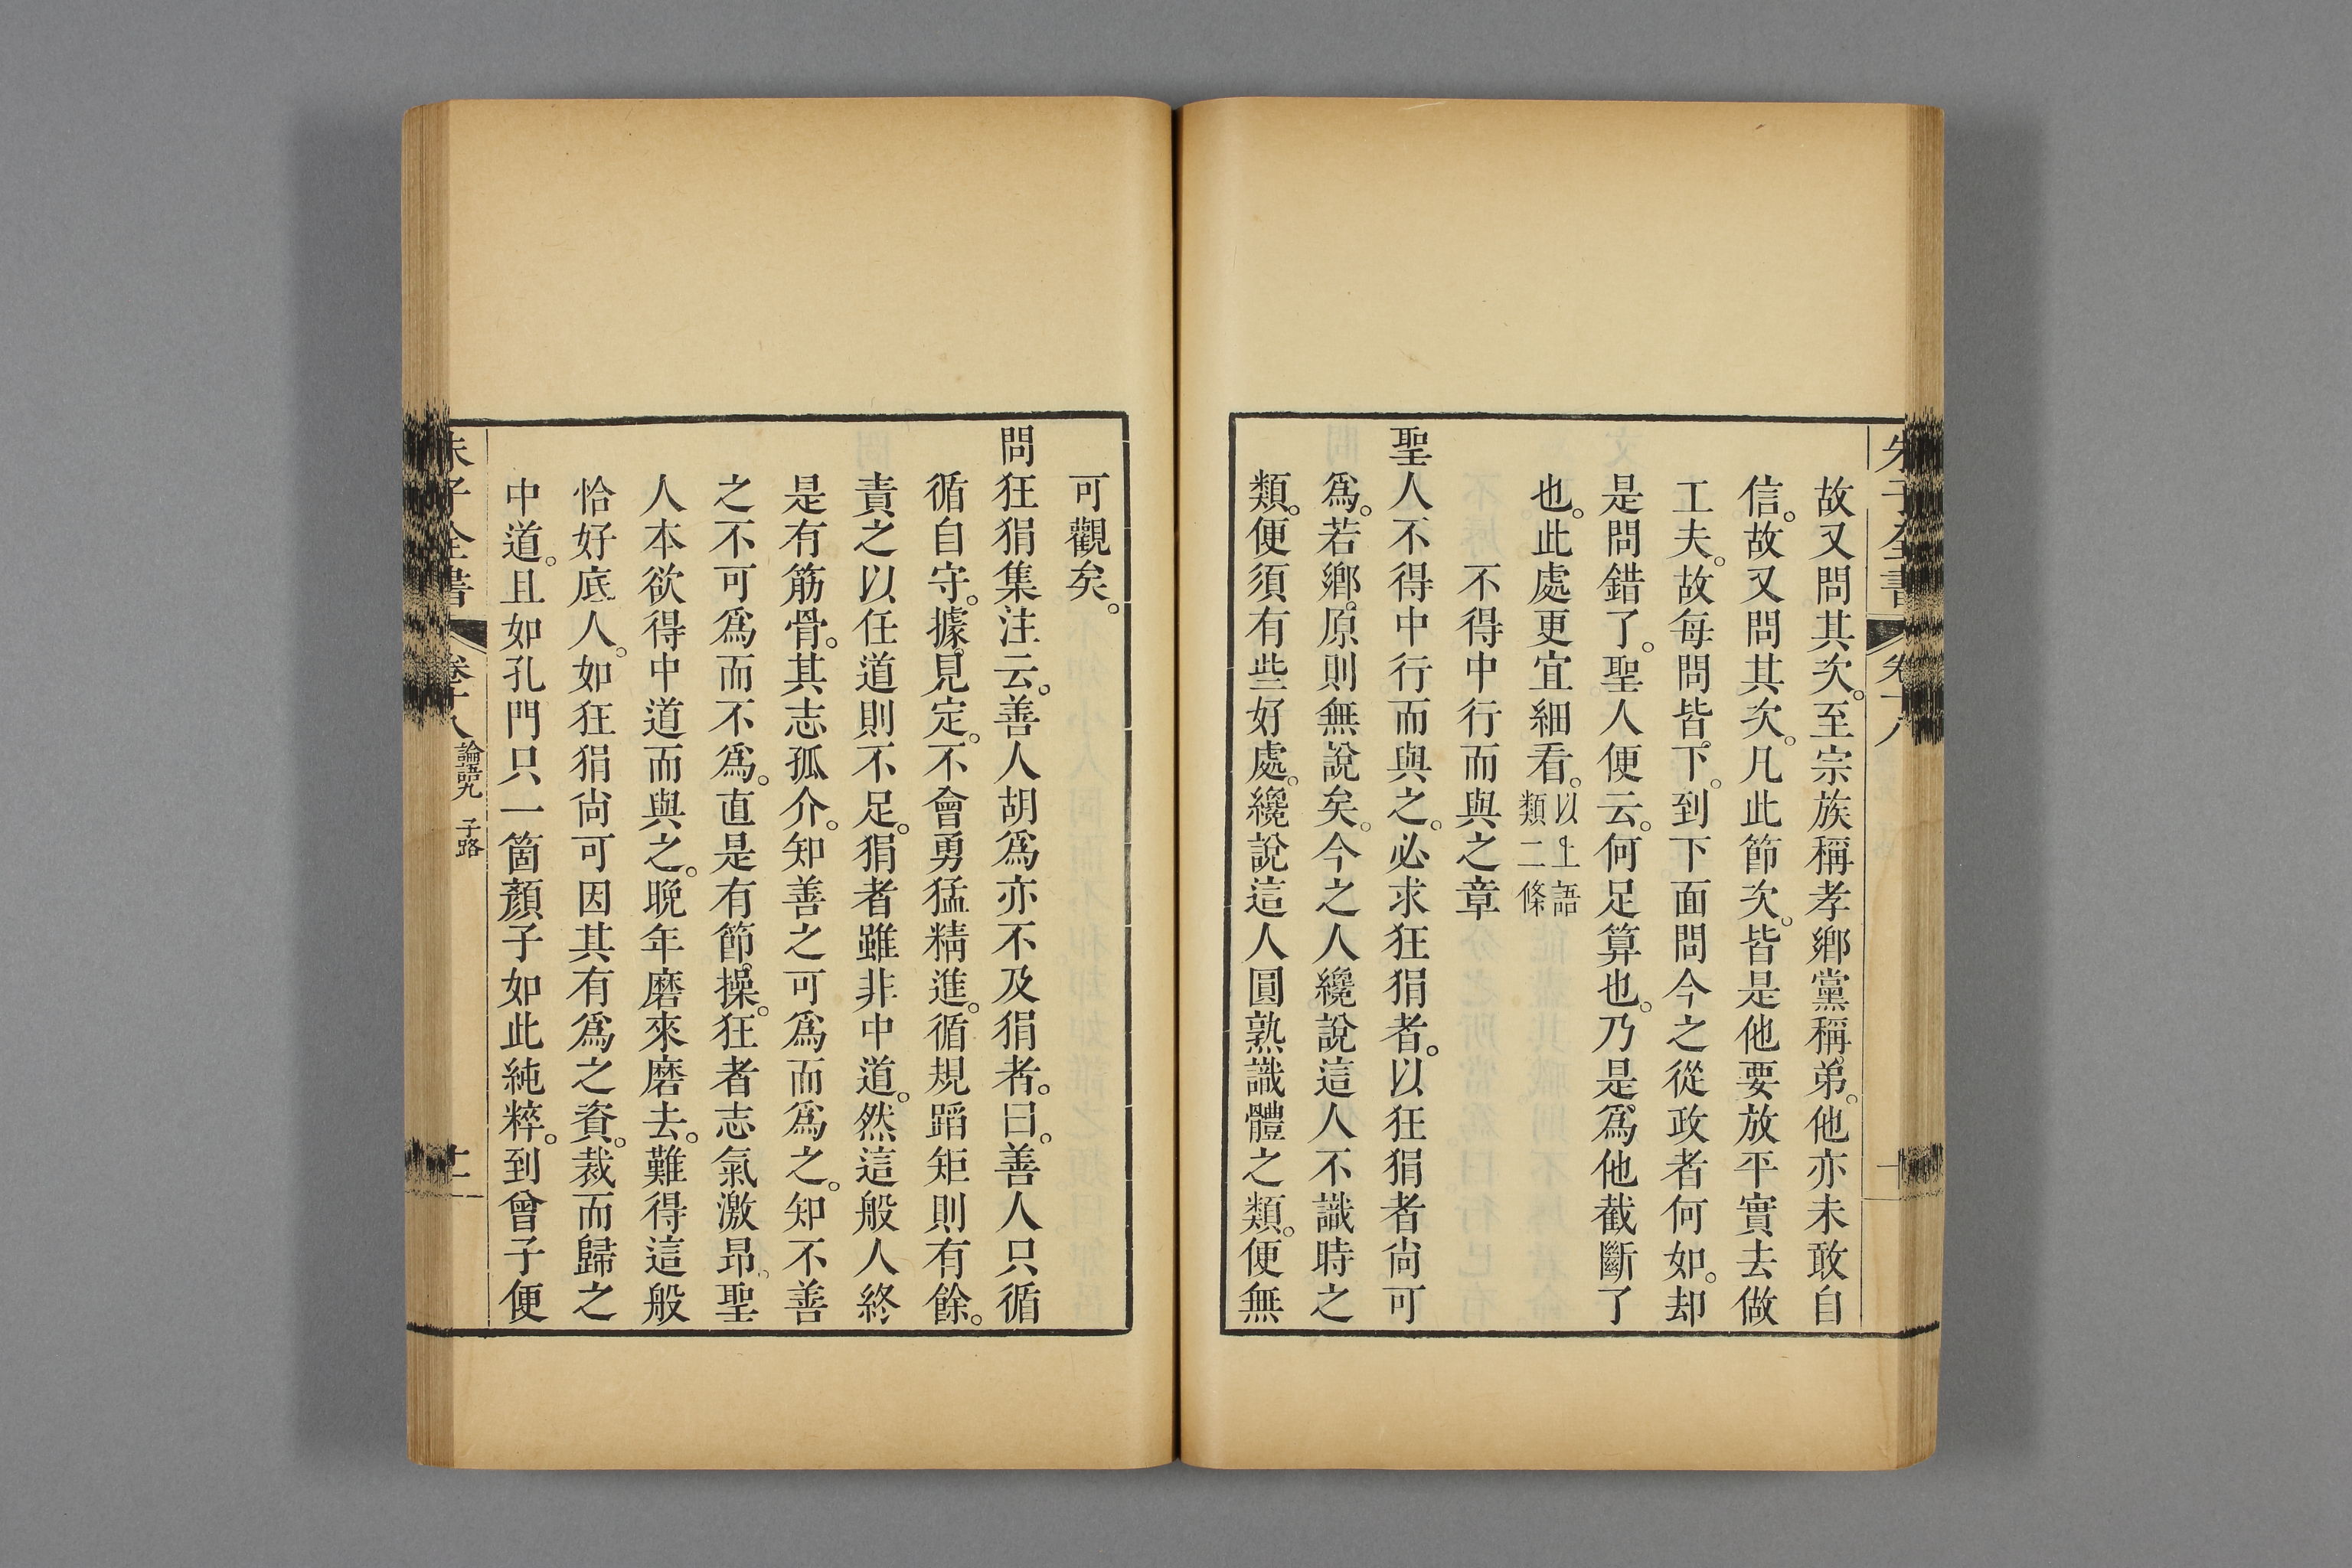 朱子全書　卷十八
故又問其次。至宗族稱孝鄉黨稱弟。他亦未敢自
信。故又問其次。凡此節次。皆是他要放平實去做
工夫。故每問皆下。到下面問今之從政者何如。却
是問錯了。聖人便云。何足算也。乃是爲他截斷了
也。此處更宜細看。以上語類二條
不得中行而與之章
聖人不得中行而與之。必求狂狷者。以狂狷者尙可
爲。若鄉原則無說矣。今之人纔說這人不識時之
類。便須有些好處。纔說這人圓熟識體之類。便無
可觀矣。
問狂狷集注云。善人胡爲亦不及狷者。曰。善人只循
循自守。據見定。不會勇猛精進。循規蹈矩則有餘。
責之以任道則不足。狷者雖非中道。然這般人終
是有筋骨。其志孤介。知善之可爲而爲之。知不善
之不可爲而不爲。直是有節操。狂者志氣激昂。聖
人本欲得中道而與之。晚年磨來磨去。難得這般
恰好底人。如狂狷尙可因其有爲之資。裁而歸之
中道。且如孔門只一箇顏子如此純粹。到曾子便
朱子全書　卷十八　論語九　子路